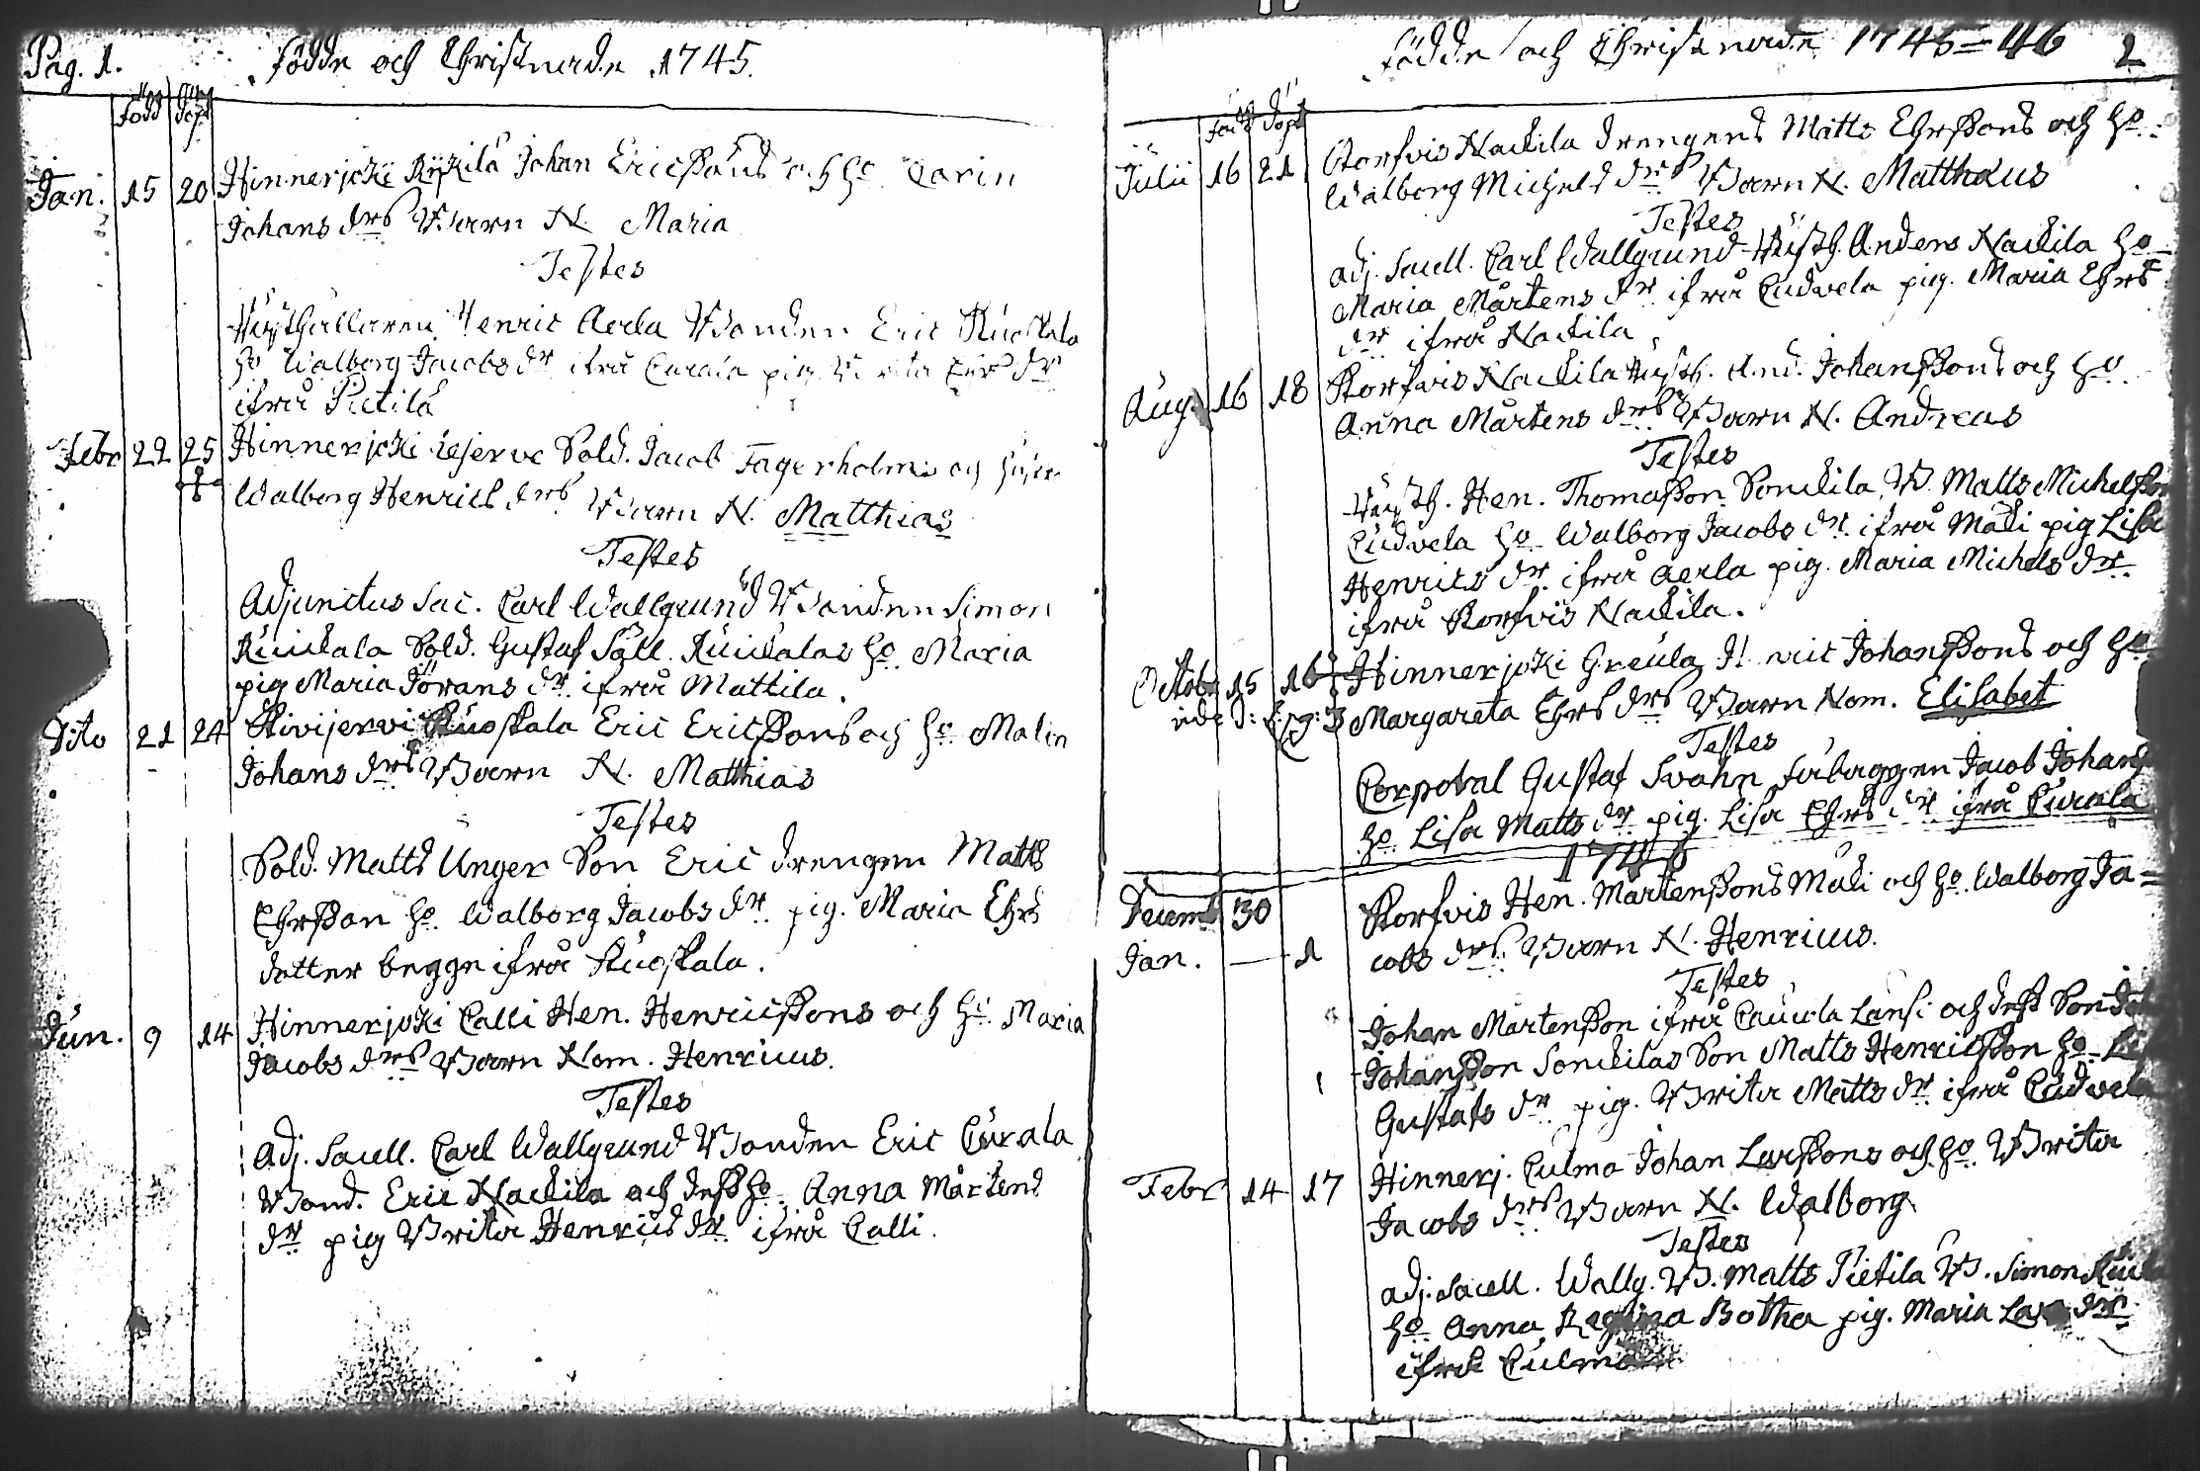 Pag. 1.
födde och Christnade 1745.
född döpt
Jan. 15 20 Hinnerjoki Kÿkilä Johan Ericßons och ho Carin
Johans drs Barn N. Maria
Testes
Henric Aerla Bonden Eric
ho Walborg Jacobs dr ifrå pig.
ifrå Pietilä
Febr 22 25 Hinnerjoki reserve Sold. Jacob Fagerholms och
Walborg Henrics drs Barn N. Matthias
Testes
Adjunctus Sac. Carl Wallgrund Bonden Simon
Sold. Gustaf ho Maria
pig Maria Jörans dr ifrå Mattila.
Dito 21 24 Kivijervi Eric Ericßons och ho Malin
Johans drs Barn N. Matthias
Testes
Sold. Matts Unger Son Eric drengen Matts
Ehrsson ho Walborg Jacobs dr pig. Maria Ehrs
dotter begge ifrå
Jun. 9 14 Hinnerjoki Calli Hen. Henricßons och ho Maria
Jacobs drs Barn Nom. Henricus.
Testes
Adj. Sacell. Carl Wallgrund Bonden Eric Cúrala
Bond. Eric Nackila och deß ho Anna Mårtens
dr pig Brita Henrics dr ifrå Calli.
födde och Christnade 1745=46 2
född döpt
Julii 16 21 Korfvis Nackila drengens Matts Ehrßons och ho
Walborg Michels drs Barn N. Matthæus
Testes
adj. Sacell. Carl Wallgrund Rusth. Anders Nackila ho
Maria Mårtens dr ifrå Cúdvela pig. Maria Ehrs
dr ifrå Nackila
Aug. 16 18 Korfvis Nackila Rusth. And. Johanßons och ho
Anna Mårtens drs Barn N. Andreas
Testes
Rusth. Hen. Thomaßon Sonckila, B. Matts Michelßon
Cúdvela ho Walborg Jacobs dr ifrå Mäki pig Lisa
Henrics dr ifrå Aerla pig. Maria Michels dr
ifrå Korfvis Nackila.
Octobr 15 16 Hinnerjoki Greúla Henric Johanßons och ho
Margareta Ehrs drs Barn Nom. Elisabet
Testes
Corporal Gustaf Svahn Jacob Johans
ho Lisa Matts dr pig. Lisa Ehrs dr ifrå Cúrala
1746
Decemb 30 Korfvis Hen. Mårtenßons Mäki och ho Walborg Ja=
Jan. — 1 cobs drs Barn N. Henricus.
Testes
Johan Mårtenßon ifrå Lansi och deß Son
Johanßon Sonckilas Son Matts Henricßon ho
Gustafs dr pig. Brita Matts dr ifrå Cúdvela
Febr 14 17 Hinnerj. Culma Johan Larßons och ho Brita
Jacobs drs Barn N. Walborg
Testes
adj. Sacell. Wallg. B. Matts Pietila B. Simon
ho Anna Regina Botha pig. Maria Lars dr
ifrå Culma